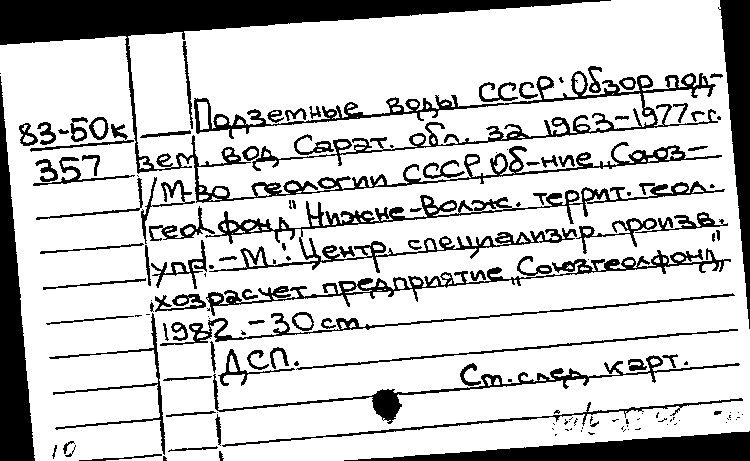 83-50к
357
Подземные воды СССР: Обзор под-
зем. вод Сарат. обл. за 1963-1977 гг.
/М-во геологии СССР, Об-ние „Союз-
геолфонд", Нижне-Волж. террит. геол.
упр. - М.: Центр. специализир. произв.
хозрасчет. предприятие „Союзгеолфонд",
1982. - 30 ст.
ДСП.
Ст. след. карт.
10